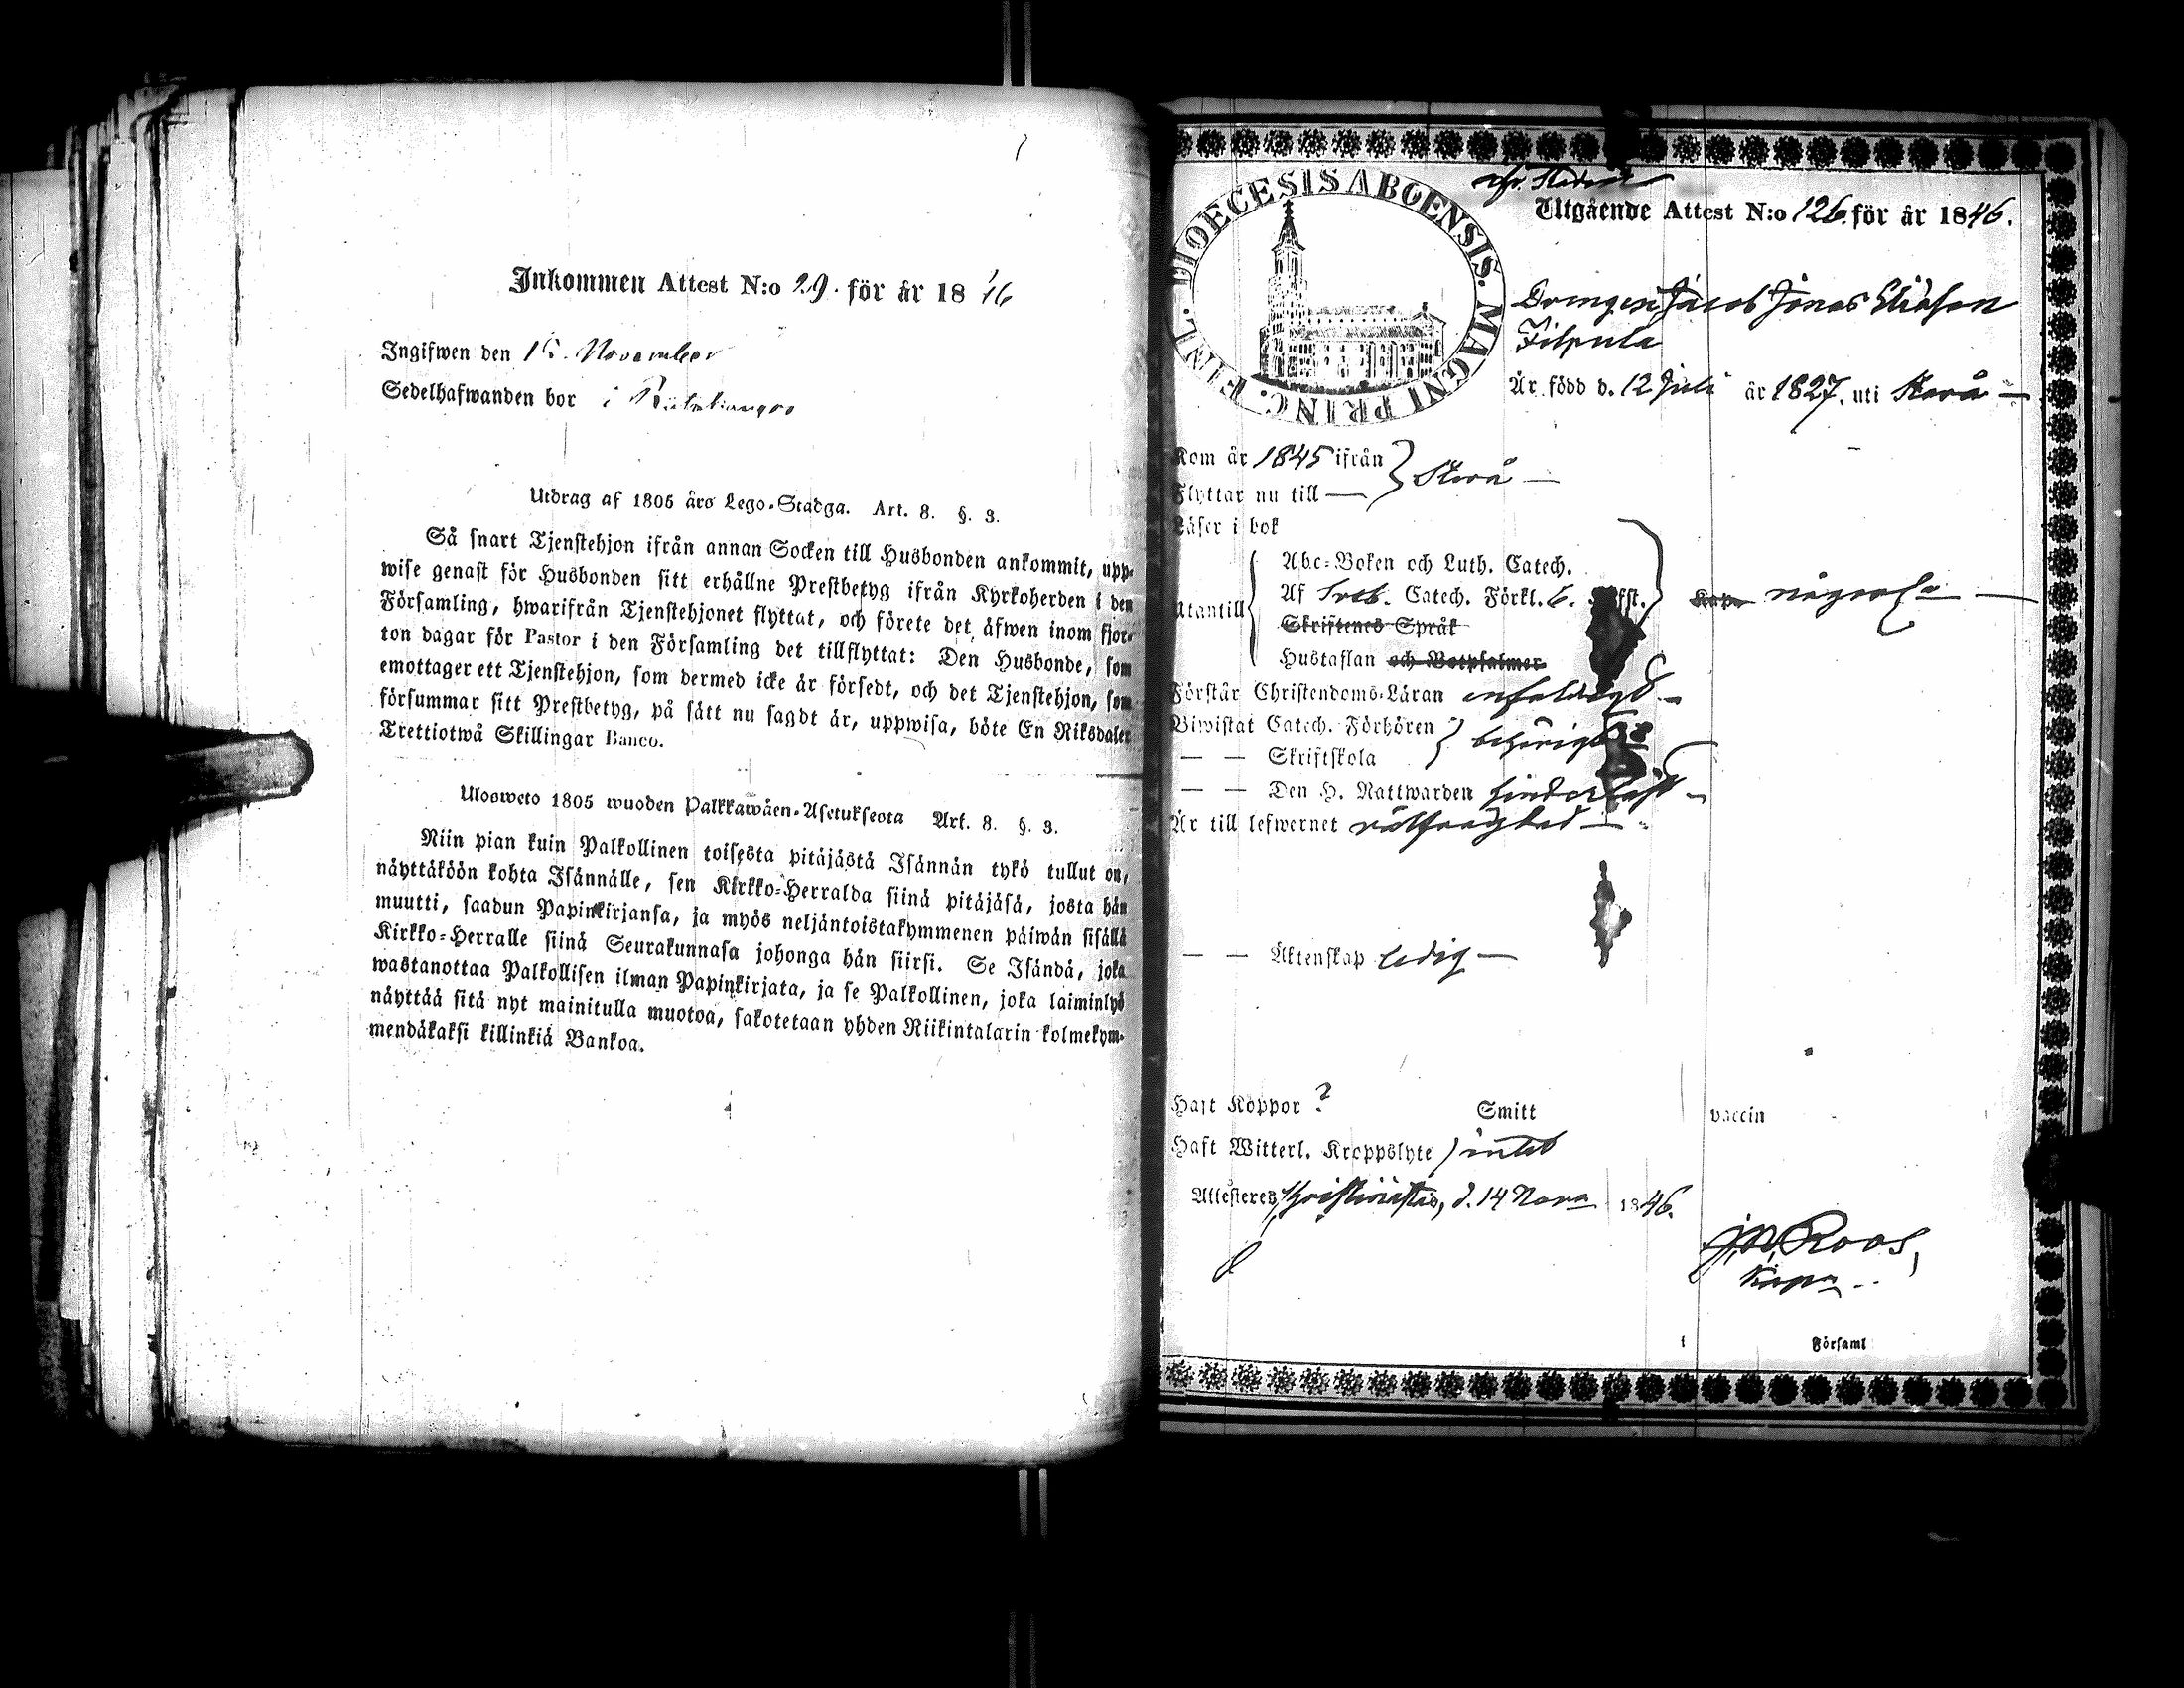 Inkommen Attest N:o 29. för år 1846
Ingifwen den 15. November
Sedelhafwanden bor i
Utdrag af 1805 års Lego-Stadga. Art. 8. §. 3.
Så snart Tjenstehjon ifrån annan Socken till Husbonden ankommit, upp-
wise genast för Husbonden sitt erhållne Prestbetyg ifrån Kyrkoherden i den
Församling, hwarifrån Tjenstehjonet flyttat, och förete det äfwen inom fjor-
ton dagar för Pastor i den Församling det tillflyttat: Den Husbonde, som
emottager ett Tjenstehjon, som dermed icke är försedt, och det Tjenstehjon, som
försummar sitt Prestbetyg, på sätt nu sagdt är, uppwisa, böte En Riksdaler
Trettiotwå Skillingar Banco.
Ulosweto 1805 wuoden Palkkawäen-Asetuksesta Art. 8. §. 3.
Niin pian kuin Palkollinen toisesta pitäjästä Isännän tykö tullut on,
näyttäköön kohta Isännälle, sen Kirkko-Herralda siinä pitäjäsä, josta hän
muutti, saadun Papinkirjansa, ja myös neljäntoistakymmenen päiwän sisällä
Kirkko-Herralle siinä Seurakunnasa johonga hän siirsi. Se Isändä, joka
wastanottaa Palkollisen ilman Papinkirjata, ja se Palkollinen, joka laiminlyö
näyttää sitä nyt mainitulla muotoa, sakotetaan yhden Riikintalarin kolmekym-
mendäkaksi killinkiä Bankoa.
DIOECESIS ABOENSIS. MAGNI PRINC. FINL.
Utgående Attest N:o 126 för år 1846.
Drengen Jacob Jonas Eliasson
Filpula
Är född d. 12 Juli år 1827. uti Storå
Kom år 1845 ifrån } Storå
Flyttar nu till
Läser i bok
Abc-Boken och Luth. Catech.
Utantill Af Sveb. Catech. Förkl. 6. någorl.
Skriftenes Språk
Hustaflan och Botpsalmer
Förstår Christendoms-Läran enfaldigt
Biwistat Catech. Förhören } behörigt
— — Skriftskola
— — Den H. Nattwarden
Är till lefwernet välfrägdad
— — Äktenskap ledig
Haft Koppor ? Smitt vaccin
Haft Witterl. Kroppslyte intet
Attesteres, Christinestad, d. 14 Nov. 1846.
J. N. Roos,
Församl